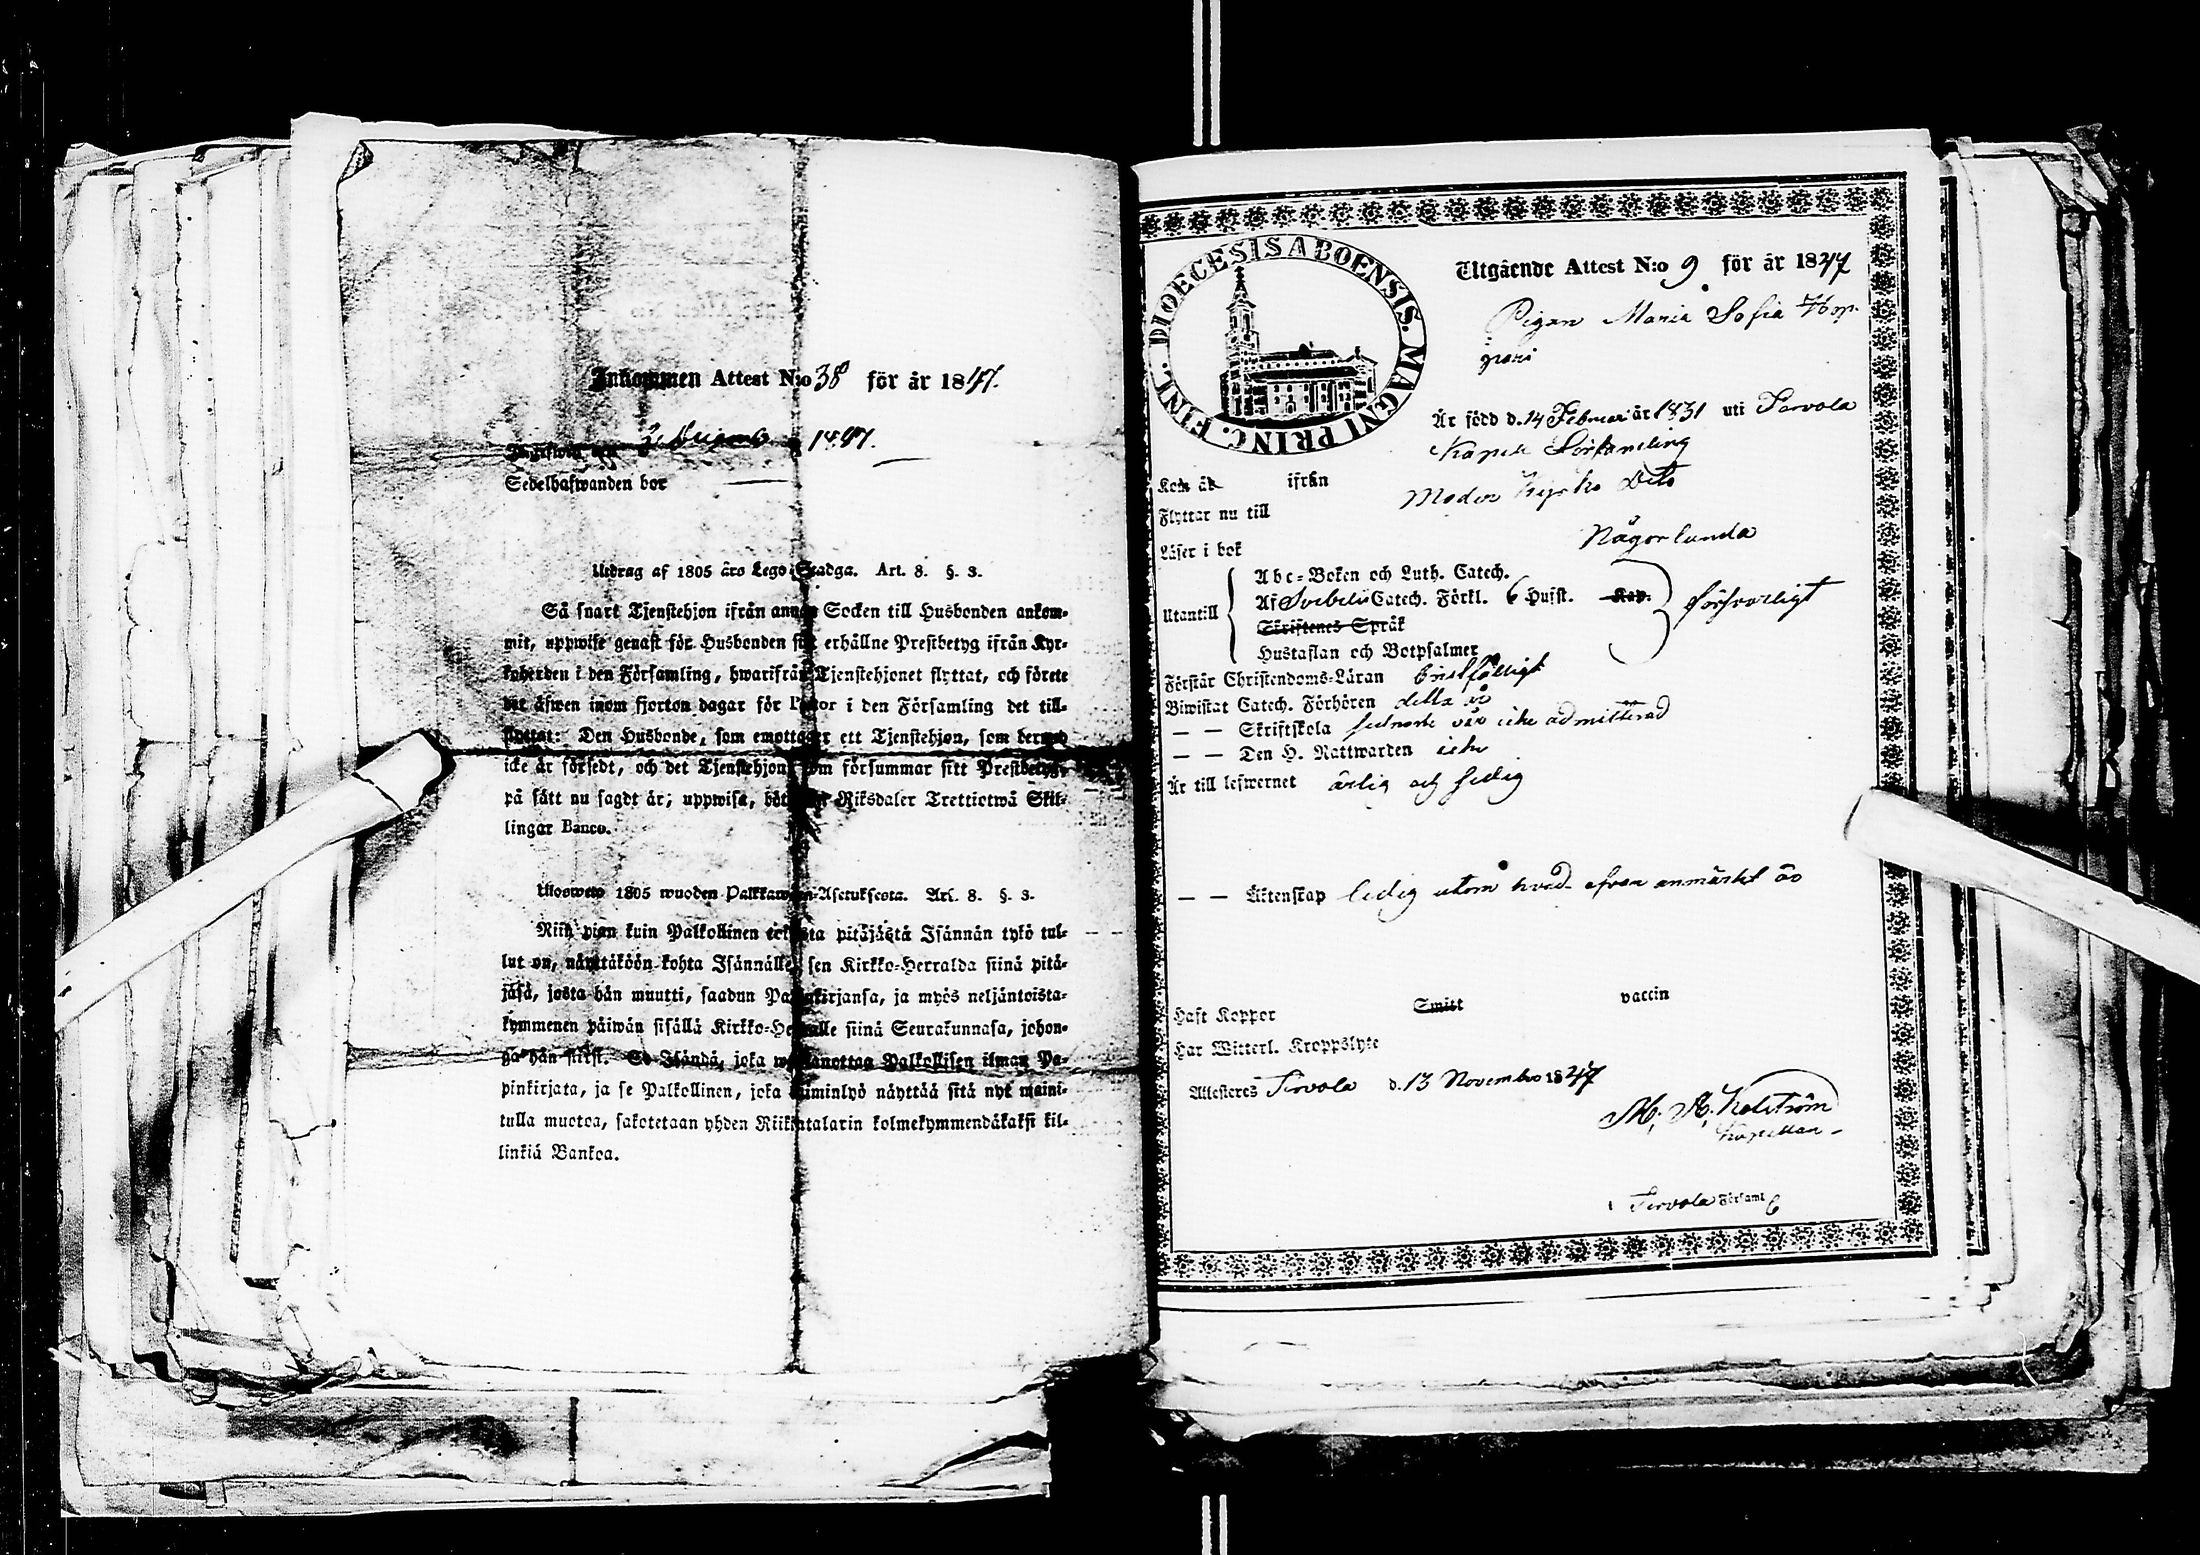 Inkommen Attest N:o 38 för år 1847.
Ingifwen den 2 Decemb. 1847.
Sedelhafwanden bor
Utdrag af 1805 års Lego-Stadga. Art. 8. §. 3.
Så snart Tjenstehjon ifrån annan Socken till Husbonden ankom-
mit, uppwise genast för Husbonden sitt erhållne Prestbetyg ifrån Kyr-
koherden i den Församling, hwarifrån Tjenstehjonet flyttat, och förete
det äfwen inom fjorton dagar för Pastor i den Församling det till-
flyttat: Den Husbonde, som emottager ett Tjenstehjon, som dermed
icke är försedt, och det Tjenstehjon som försummar sitt Prestbetyg,
på sätt nu sagdt är; uppwisa, böte en Riksdaler Trettiotwå Skil-
lingar Banco.
Uloswetto 1805 wuoden Palkkawäen-Asetuksesta. Art. 8. §. 3.
Niin pian kuin Palkollinen toisesta pitäjästä Isännän tykö tul-
lut on, näyttäköön kohta Isännälle, sen Kirkko-Herralda siinä pitä-
jäsä, josta hän muutti, saadun Papinkirjansa, ja myös neljäntoista-
kymmenen päiwän sisällä Kirkko-Herralle siinä Seurakunnasa, johon-
ga hän siirsi. Se Isändä, joka wastanottaa Palkollisen ilman Pa-
pinkirjata, ja se Palkollinen, joka laiminlyö näyttää sitä nyt maini-
tulla muotoa, sakotetaan yhden Riikintalarin kolmekymmendäkaksi kil-
linkiä Bankoa.
DIOECESIS ABOENSIS. MAGNI PRINC. FINL.
Utgående Attest N:o 9 för år 1847
Pigan Maria Sofia Hop-
pari
Är född d. 14 Februari år 1831 uti Tervola
Kapell Församling
Kom år ifrån
Flyttar nu till Moder Kyrko Dito
Läser i bok Någorlunda
Utantill
Abc-Boken och Luth. Catech.
Af Svebelii Catech. Förkl. 6 Husst. Kap.
Skriftenes Språk
Hustaflan och Botpsalmer
försvarligt
Förstår Christendoms-Läran bristfälligt
Biwistat Catech. Förhören detta år
— — Skriftskola sednare vår icke admitterad
— — Den H. Nattwarden icke
Är till lefwernet ärlig och sedig
— — Äktenskap ledig utom hvad ofvan anmärkt är
Haft Koppor Smitt vaccin
Har Witterl. Kroppslyte
Attesteres Tervola d. 13 Novembr 1847
M. A. Kelström
Kapellan
i Tervola Förfaml